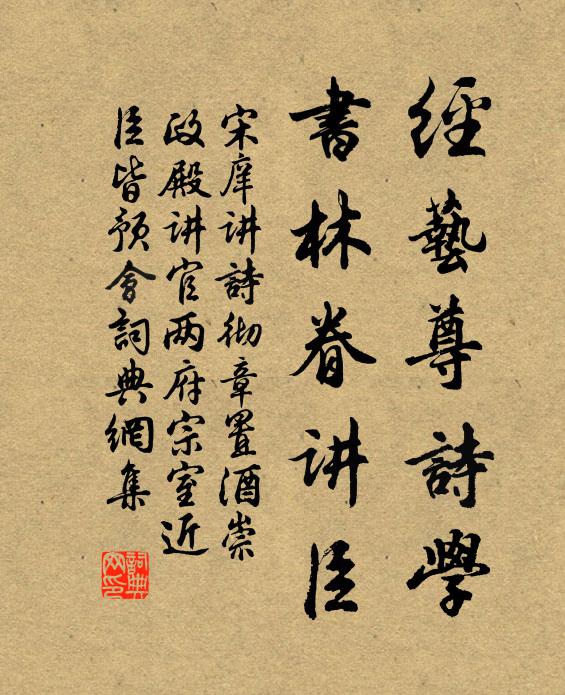 經藝尊詩學
書林眷讲臣
宋庠讲詩彻章置酒崇
政殿讲官两府宗室近
臣皆预會詞典網集
詞典
网印